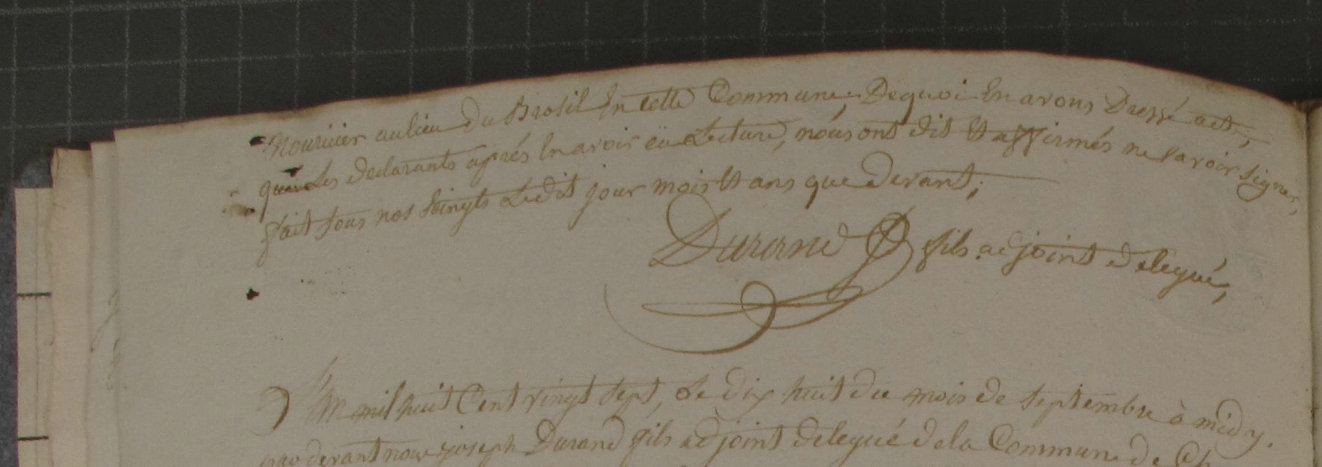 nouricier au lieu du Brosil En cette Commune, De quoi En avons Dressé acte,
que Les declarants aprés En avoir eu Lecture, nous ont dit Et affirmés ne Savoir Signer,
fait sous nos Seingts Ledit jour mois Et ans que devant,
Durand fils adjoint delegué,
L'an mil huit Cent vingt Sept, Le dix huit du mois de septembre à midy.
par devant nous joseph Durand fils adjoint delegué de la Commune de